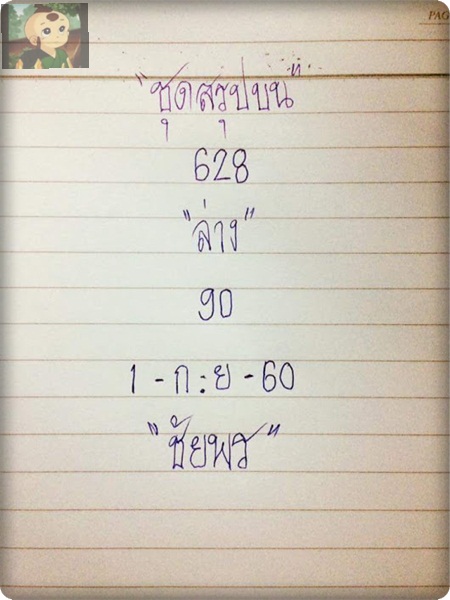 PAG
"ชุดสรุปบน"
628
"ล่าง"
90
1 - ก:ย - 60
"ชัยพร"